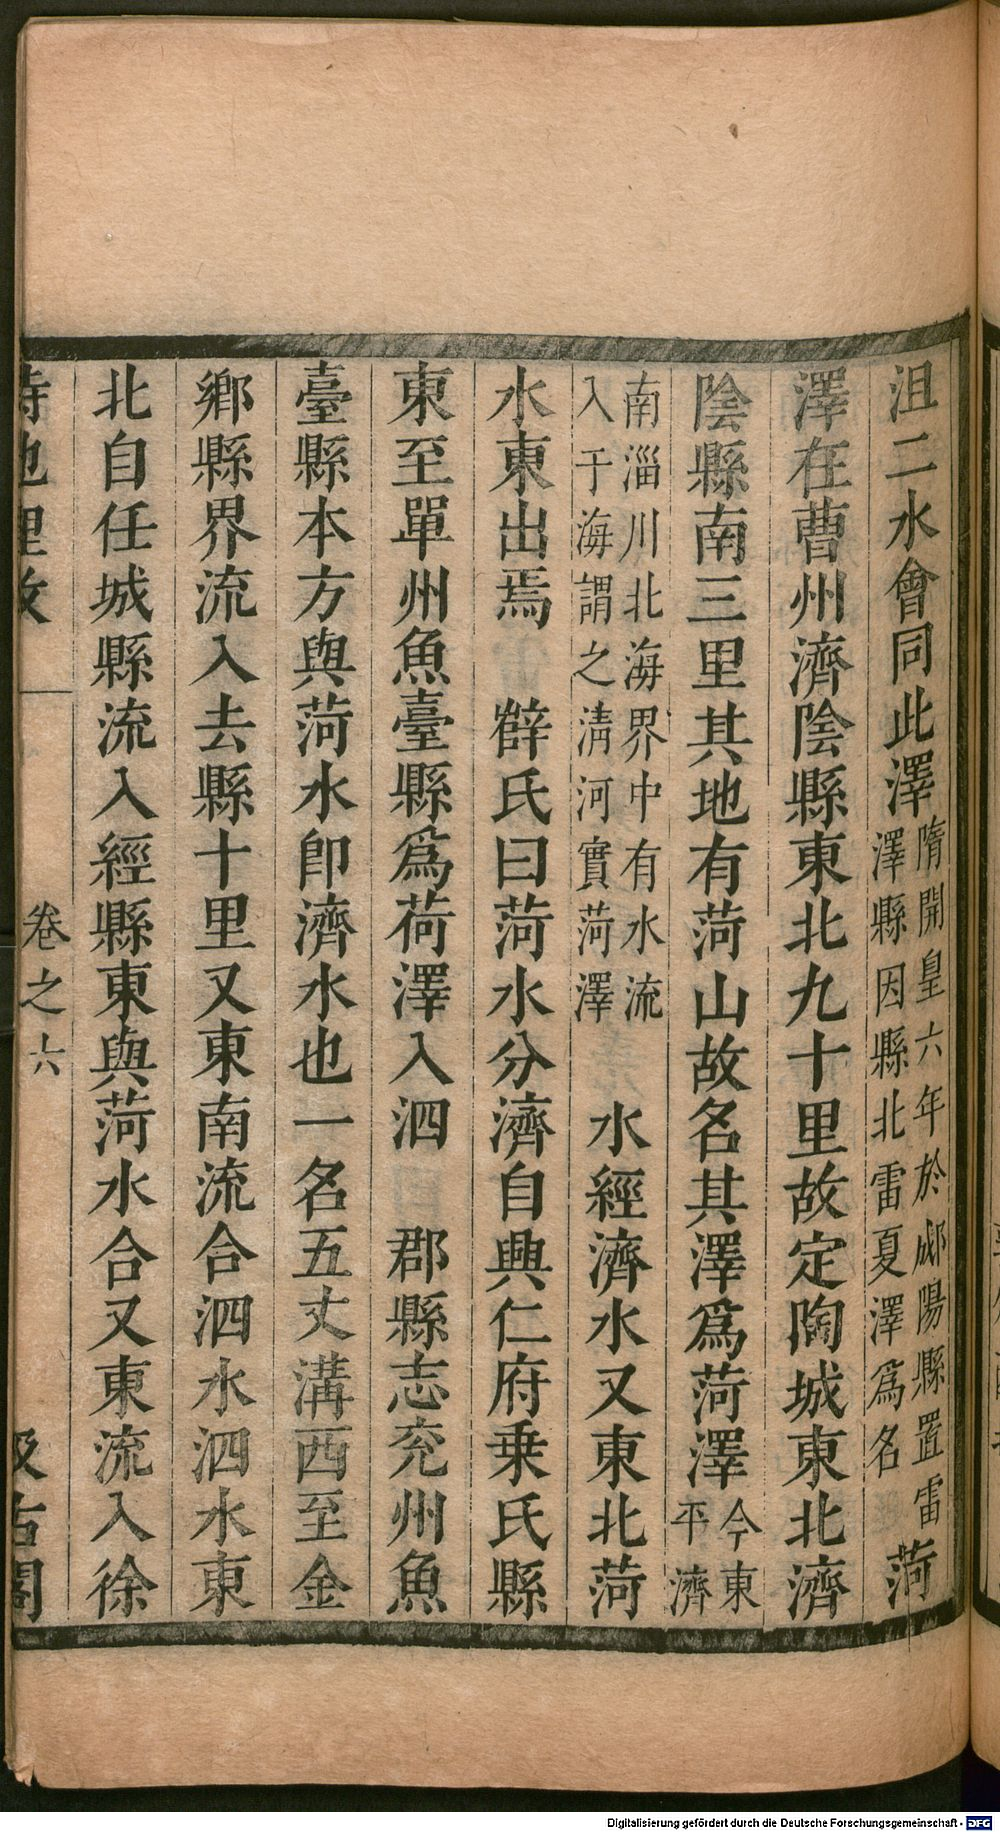 沮二水會同此澤隋開皇六年於郕陽縣置雷澤縣因縣北雷夏澤爲名菏
澤在曹州濟陰縣東北九十里故定陶城東北濟
陰縣南三里其地有菏山故名其澤爲菏澤今東平濟
南淄川北海界中有水流入于海謂之淸河實菏澤 水經濟水又東北菏
水東出焉 薛氏曰菏水分濟自興仁府乗氏縣
東至單州魚臺縣爲荷澤入泗 郡縣志兖州魚
臺縣本方與菏水卽濟水也一名五丈溝西至金
鄉縣界流入去縣十里又東南流合泗水泗水東
北自任城縣流入經縣東與菏水合又東流入徐
詩地理攷 卷之六 汲古閣
Digitalisierung gefördert durch die Deutsche Forschungsgemeinschaft - DFG